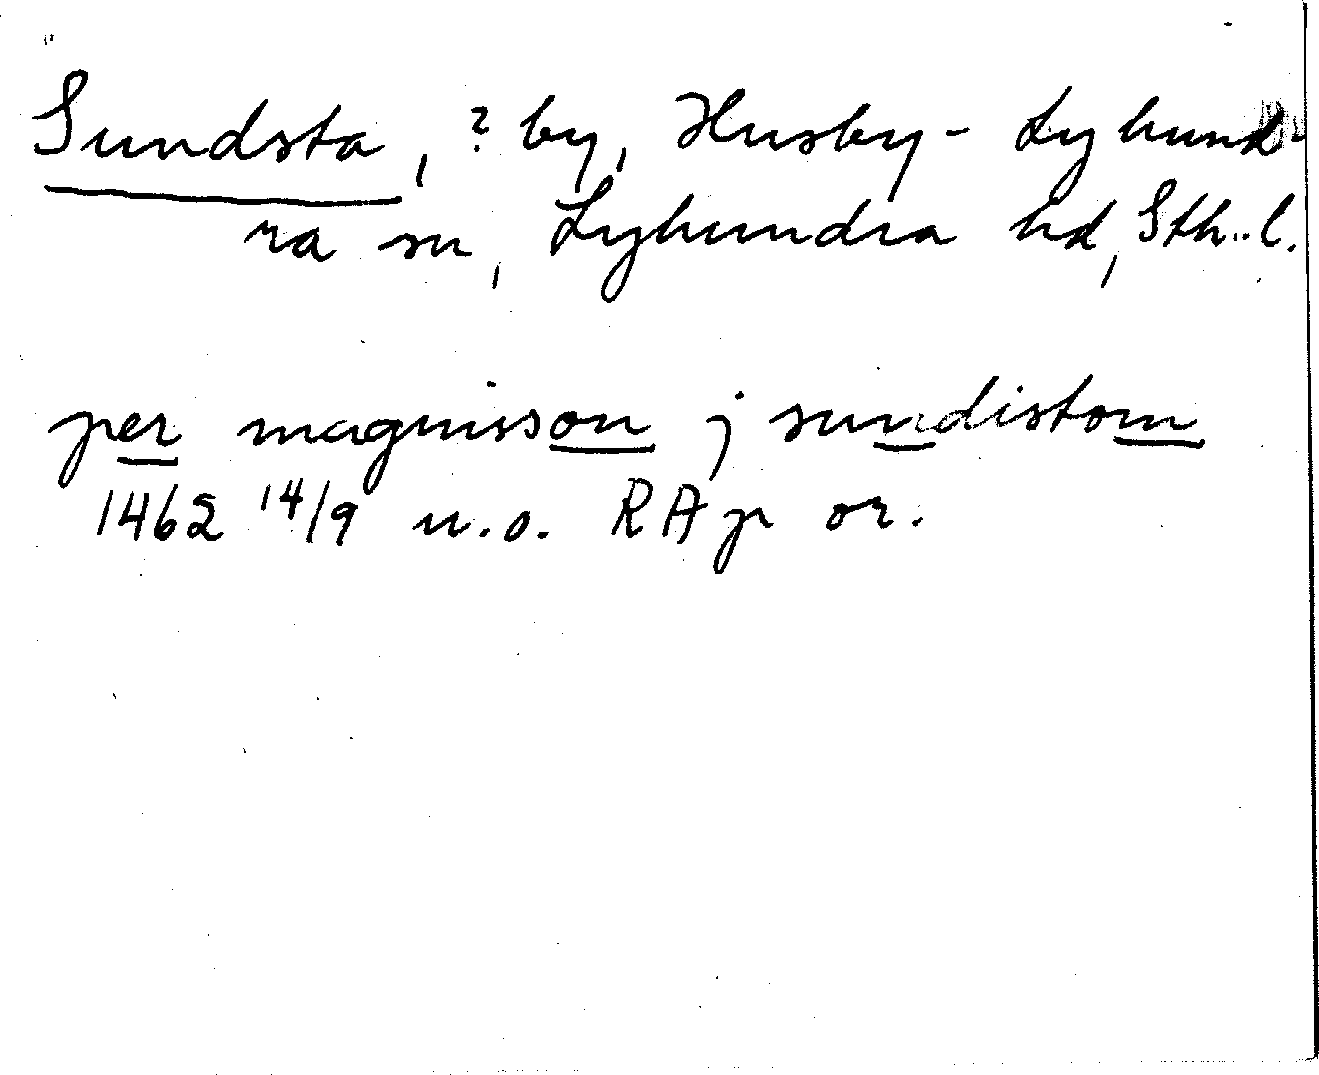 Sundsta, ? by, Husby-Lyhund-
ra sn, Lyhundra hd, Sth..l.
per magnusson j sundistom
1462 14/9 u.o. RAp or.